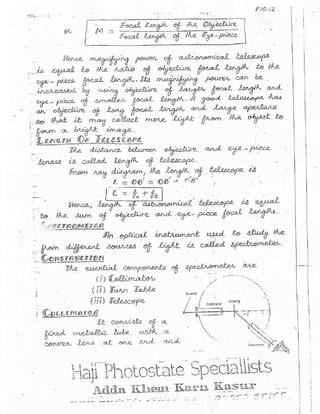 P10-12
or M = Focal Length of the Objective
Focal Length of the Eye-piece
Hence magnifying power of astronomical telescope
is equal to the ratio of objective focal length to the
eye-piece focal length. Its magnifying power can be
increased by using objective of larger focal length and
eye-piece of smaller focal length. A good telescope has
an objective of long focal length and large aperture
so that it may collect more light from the object to
form a bright image.
LENGTH OF TELESCOPE
The distance between objective and eye-piece
lenses is called length of telescope.
From ray diagram, the length of telescope is
L = OO' = OB' + 
L = fo + fe
Hence, length of astronomical telescope is equal
to the sum of objective and eye-piece focal lengths.
SPECTROMETER
An optical instrument used to study the
from different sources of light is called spectrometer.
CONSTRUCTION
The essential components of spectrometer are
(i) Collimator
(ii) Turn Table
(iii) Telescope
Collimator
COLLIMATOR
It consists of a
fixed metallic tube with a
convex lens at one end and
Haji Photostate Speciallists
Adda Khem Karn Kasur